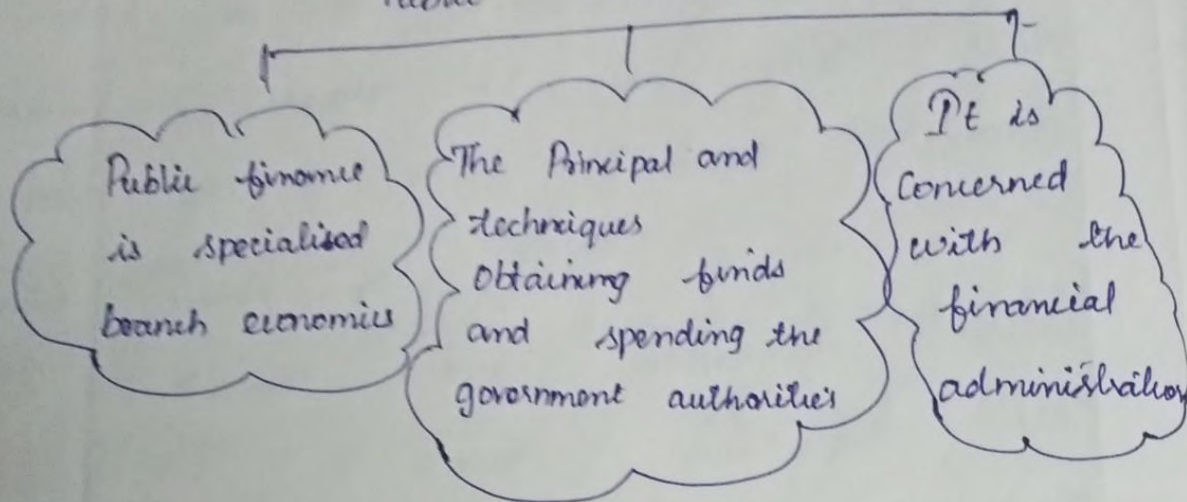 Public finance
is specialised
branch economics
The Principal and
techniques
obtaining funds
and spending the
government authorities
It is
concerned
with the
financial
administration